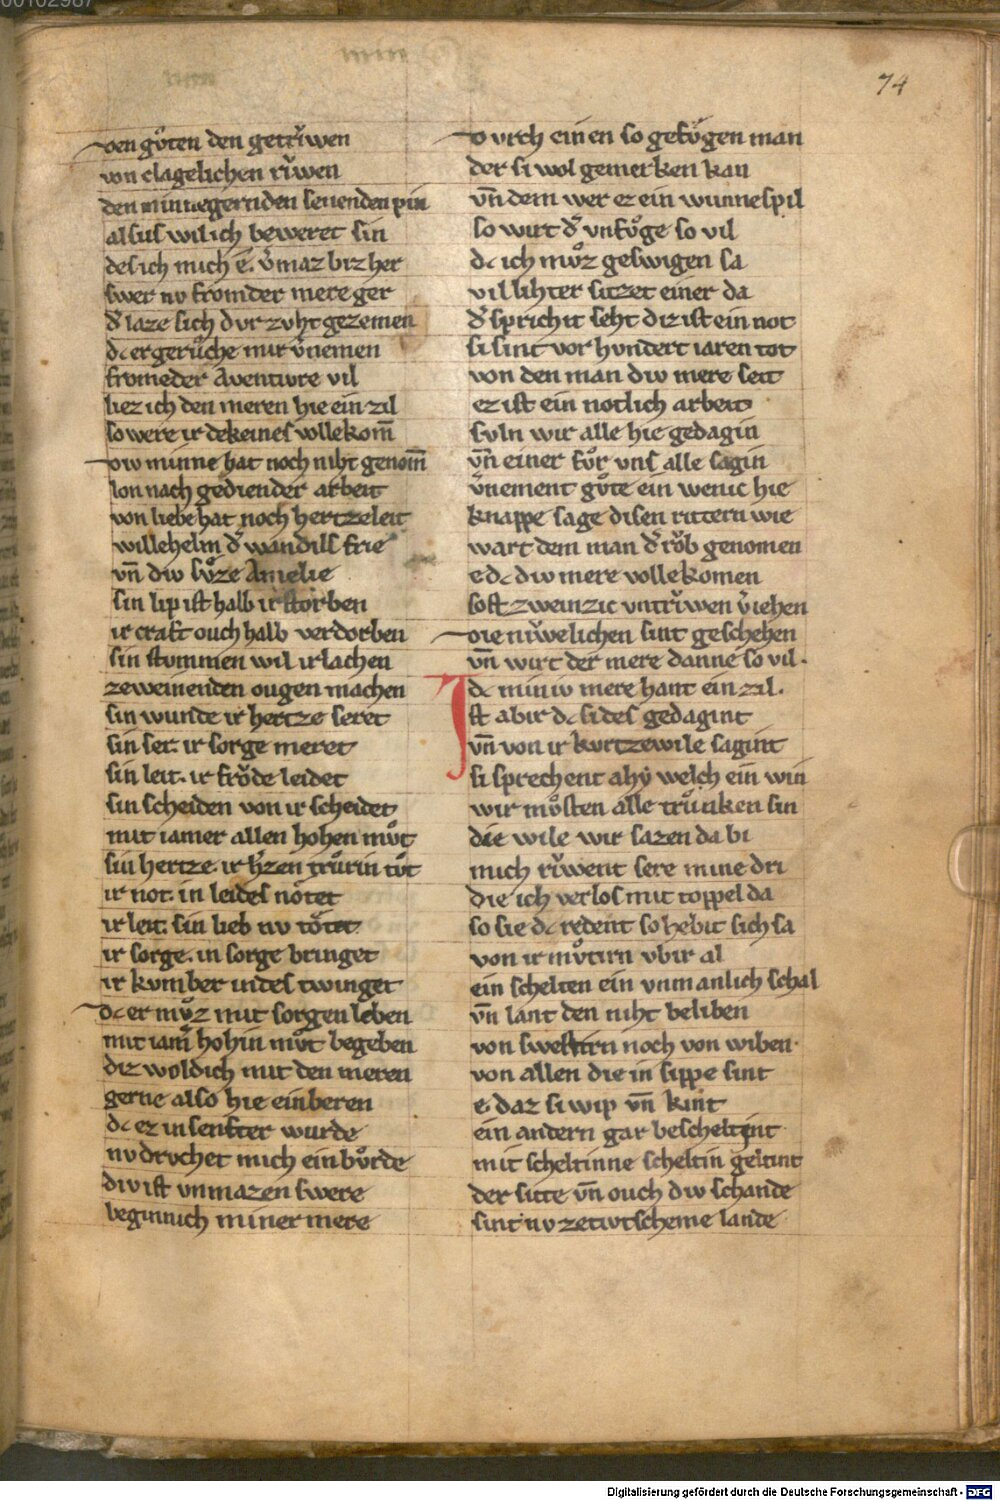 74
den gůten den getrv̊wen
von clagelichen rv̊wen
den minnegernden senenden pin
alsus wil ich beweret sin
des ich mich e. v̄maz biz her
swer nv fromder mere ger
d̄ laze sich dvr zvht gezemen
dc er gerůche mir v̄nemen
fromeder Aventivre vil
liez ich den meren hie ein zil
so were ir dekeines vollekom̄
div minne hat noch niht genom̄
lon nach gediender arbeit
von liebe hat noch hertzeleit
willehelm d̄ wandills frie
vn̄ div svͦze Amelie
sin lip ist halb irstorben
ir craft ouch halb verdorben
sin stummen wil ir lachen
zeweinenden ougen machen
sin wunde ir hertze seret
sin ser. ir sorge meret
sin leit. ir frv̊de leidet
sin scheiden von ir scheidet
mit iamer allen hohen mv̊t
sin hertze. ir h̄zen trv̊rin tůt
ir not. in leides nôtet
ir leit. sin lieb nv tôtet
ir sorge. in sorge bringet
ir kvmber indes twinget
dc er mv̊z mit sorgen leben
mit iam̄ hohin mv̊t begeben
diz woldich mit den meren
gerne also hie einberen
dc ez in senfter wurde
nv drvchet mich ein bv̊rde
div ist vnmazen swere
beginnich miner mere
dvrch einen so gefv̊gen man
der si wol gemerken kan
vn̄ dem wer ez ein wunnespil
so wirt d̄ vnfv̊ge so vil
dc ich mv̊z geswigen sa
vil lihter sitzet einer da
d̄ sprichit seht diz ist ein not
si sint vor hvndert iaren tot
von den man div mere seit
ez ist ein notlich arbeit
svln wir alle hie gedagin
vn̄ einer fv̊r vns alle sagin
v̄nement gůte ein wenic hie
knappe sage disen rittern wie
wart dem man d̄ rv̊b genomen
e dc div mere vollekomen
sost zweinzic vntrv̊wen v̄iehen
die nv̊welichen sint geschehen
vn̄ wirt der mere danne so vil.
dc miniv mere hant ein zil.
Ist abir dc si des gedagint
vn̄ von ir kvrtzewile sagint
si sprechent ahy welch ein win
wir mv̊sten alle trv̊nken sin
die wile wir sazen da bi
mich rv̊went sere mine dri
die ich verlos mit toppel da
so sie dc redent so hebit sich sa
von ir mv̊tirn vbir al
ein schelten ein vnmanlich schal
vn̄ lant den niht beliben
von swestirn noch von wiben.
von allen die in sippe sint
e. daz si wip vn̄ kint
ein andern gar bescheltint
mit scheltinne scheltin geltint
der sitte vn̄ ouch div schande
sint nv zetivtscheme lande
Digitalisierung gefördert durch die Deutsche Forschungsgemeinschaft - DFG